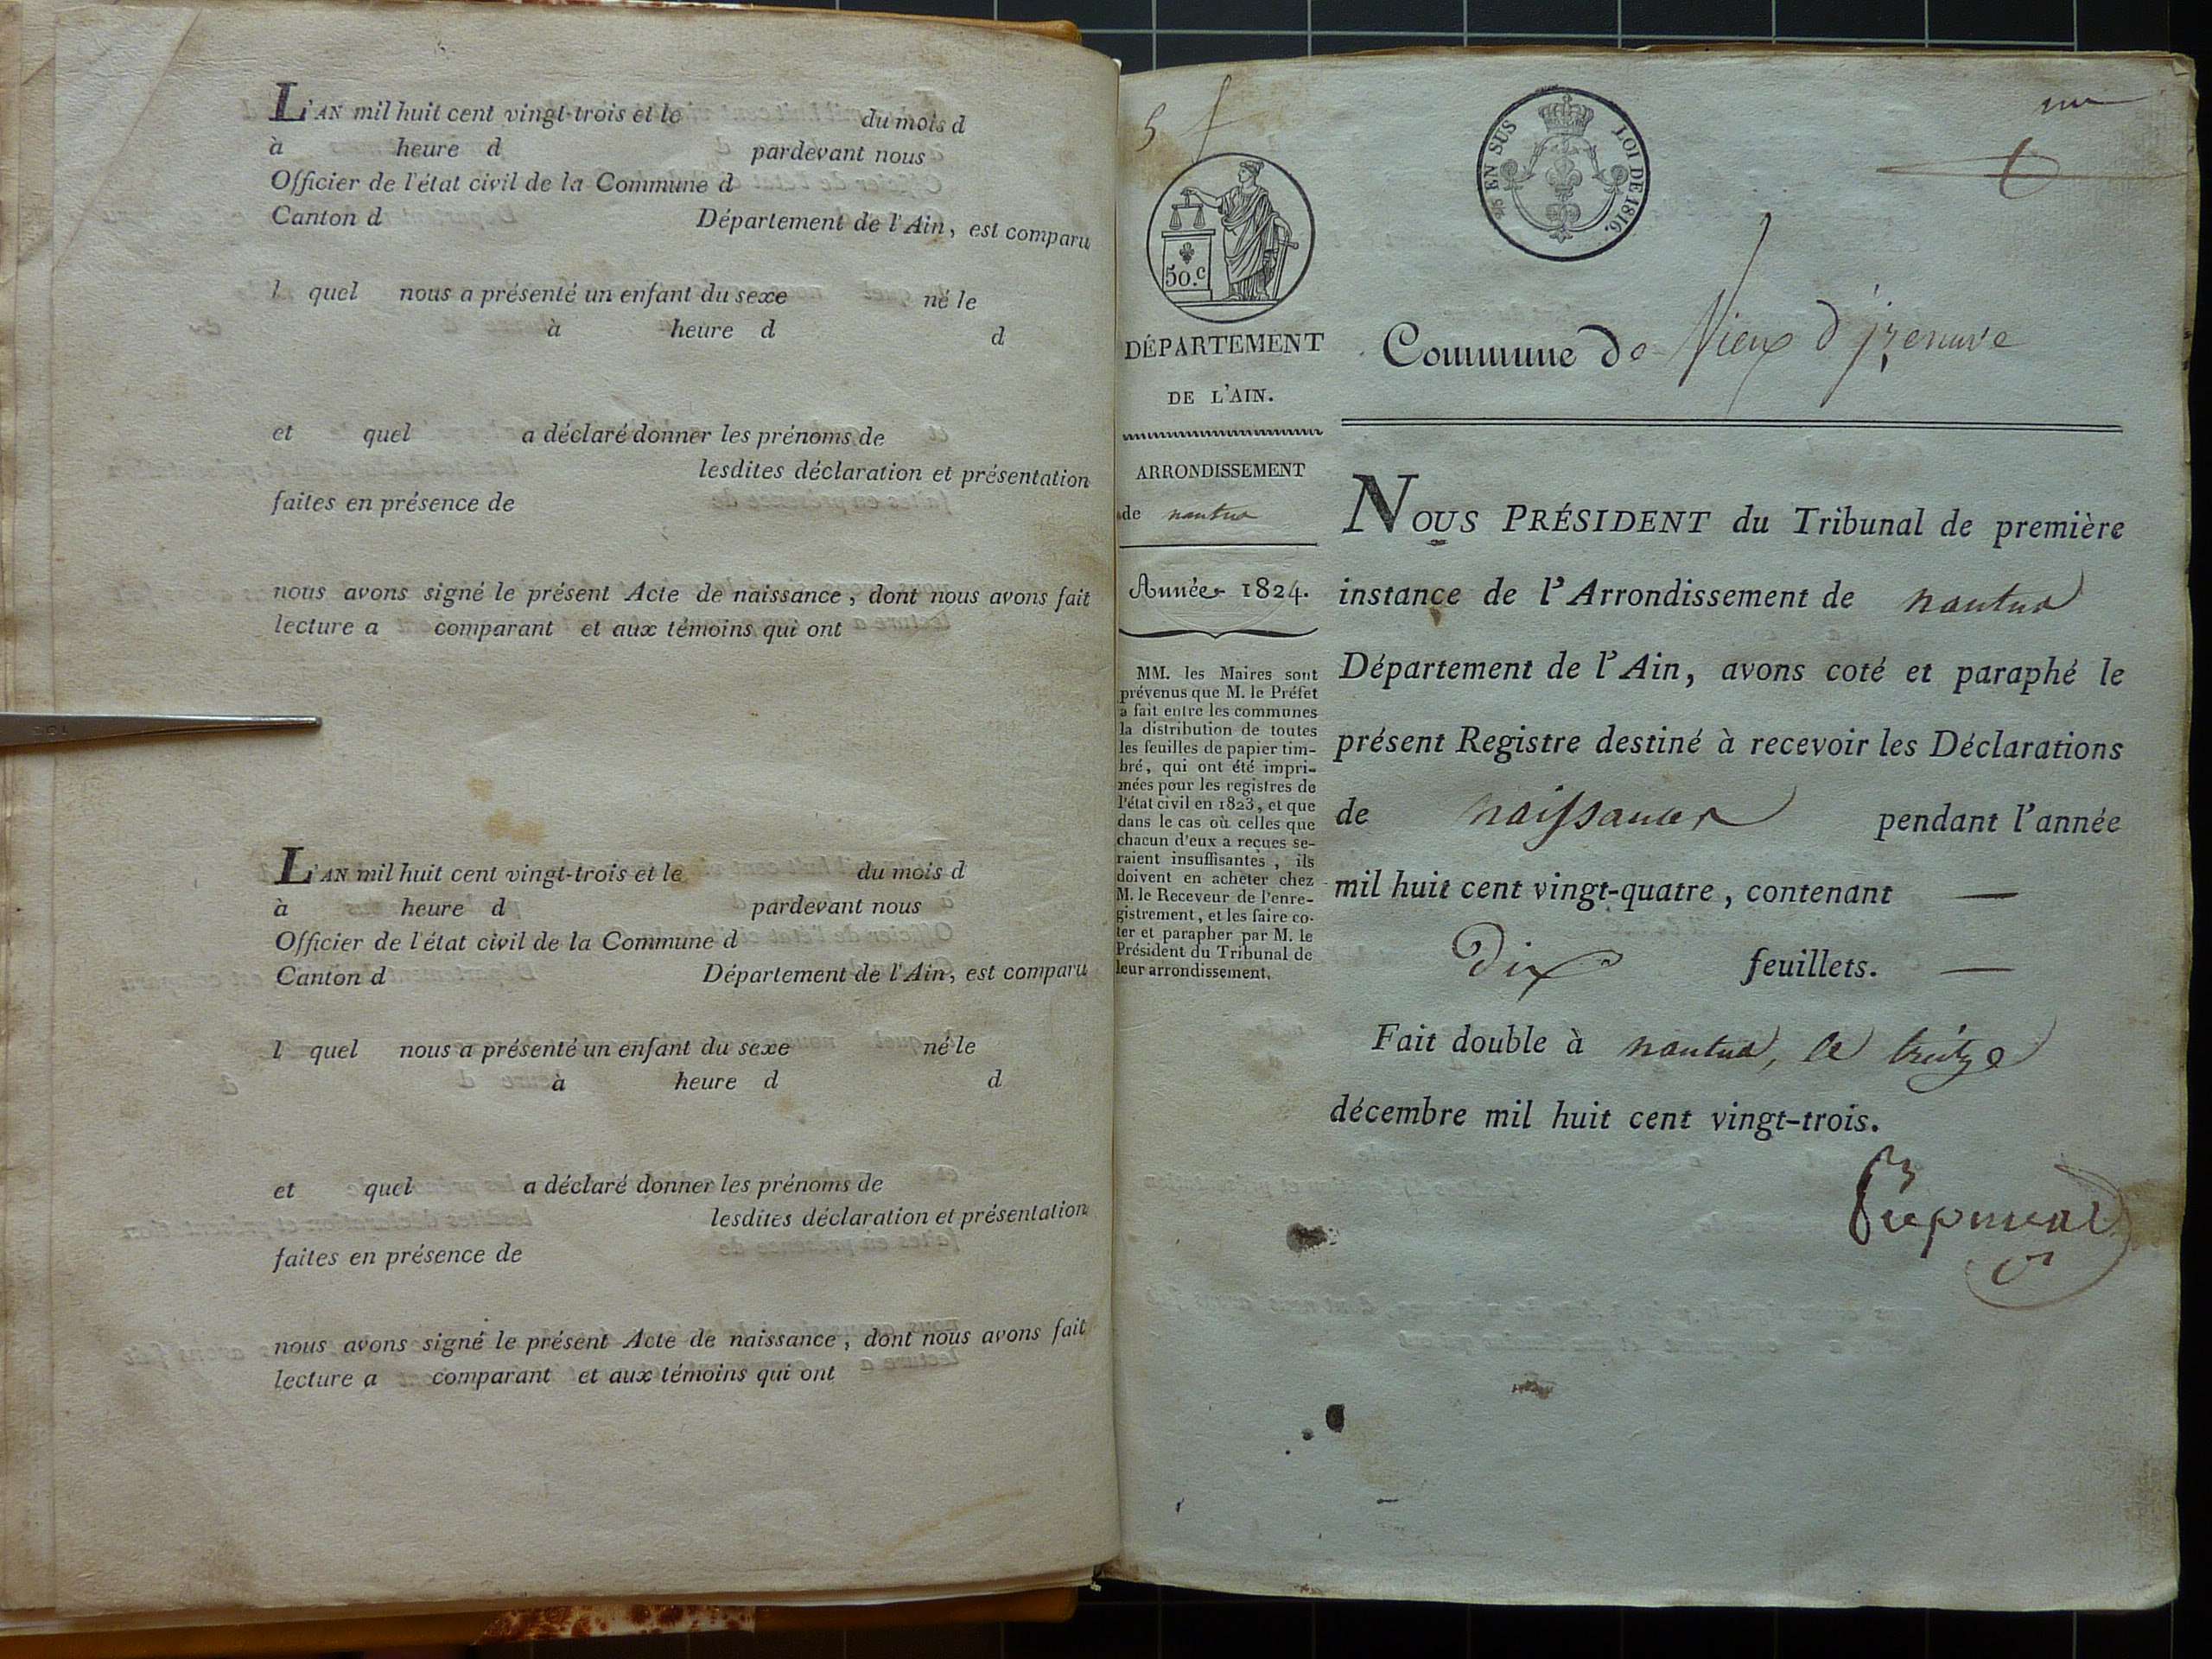 L'AN mil huit cent vingt-trois et le du mois d
à heure d pardevant nous
Officier de l'état civil de la Commune d
Canton d Département de l'Ain, est comparu
l quel nous a présenté un enfant du sexe né le
à heure d d
et quel a déclaré donner les prénoms de
lesdites déclaration et présentation
faites en présence de
nous avons signé le présent Acte de naissance, dont nous avons fait
lecture a comparant et aux témoins qui ont
L'AN mil huit cent vingt-trois et le du mois d
à heure d pardevant nous
Officier de l'état civil de la Commune d
Canton d Département de l'Ain, est comparu
l quel nous a présenté un enfant du sexe né le
à heure d d
et quel a déclaré donner les prénoms de
lesdites déclaration et présentation
faites en présence de
nous avons signé le présent Acte de naissance, dont nous avons fait
lecture a comparant et aux témoins qui ont
5 f
EN SUS LOI DE 1816.
50.c
DÉPARTEMENT
DE L'AIN.
ARRONDISSEMENT
de nantua
Année 1824.
MM. les Maires sont
prévenus que M. le Préfet
a fait entre les communes
la distribution de toutes
les feuilles de papier tim-
bré, qui ont été impri-
mées pour les registres de
l'état civil en 1823, et que
dans le cas où celles que
chacun d'eux a reçues se-
raient insuffisantes, ils
doivent en acheter chez
M. le Receveur de l'enre-
gistrement, et les faire co-
ter et parapher par M. le
Président du Tribunal de
leur arrondissement.
Commune de Vieux d'izenave
NOUS PRÉSIDENT du Tribunal de première
instance de l'Arrondissement de nantua
Département de l'Ain, avons coté et paraphé le
présent Registre destiné à recevoir les Déclarations
de naissances pendant l'année
mil huit cent vingt-quatre, contenant —
Dix feuillets. —
Fait double à nantua, le treize
décembre mil huit cent vingt-trois.